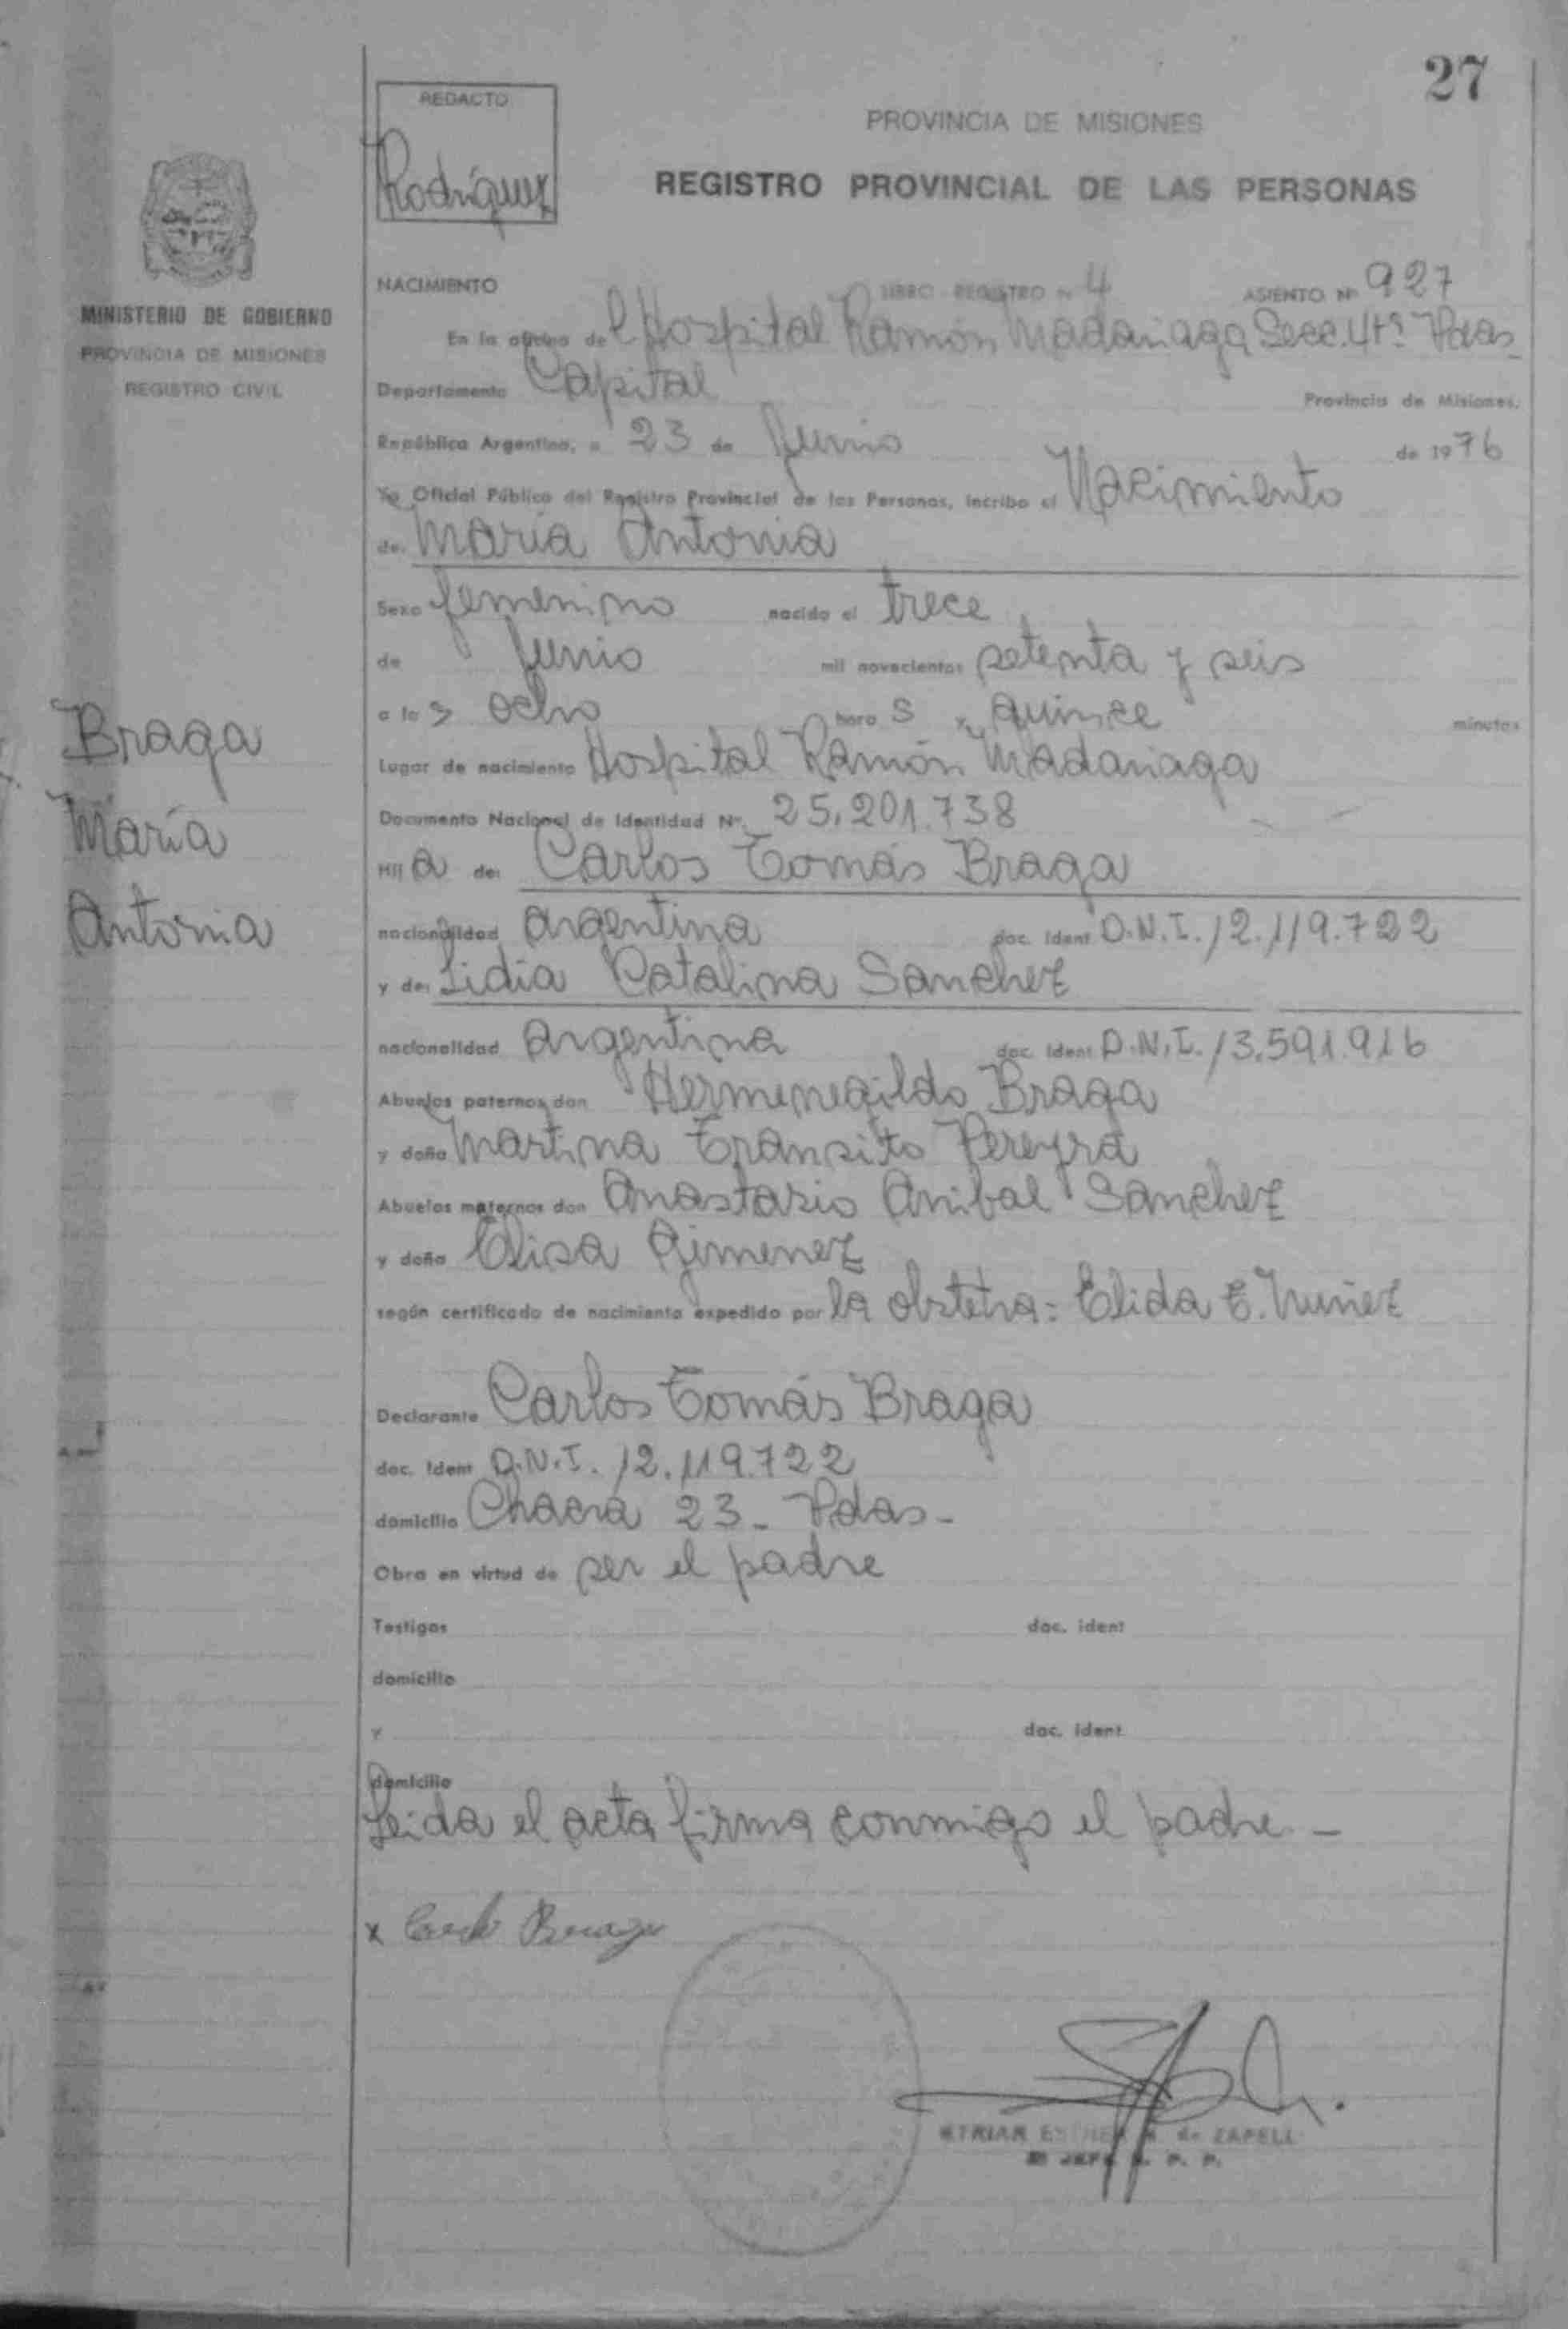 27
REDACTO
Rodríguez
PROVINCIA DE MISIONES
REGISTRO PROVINCIAL DE LAS PERSONAS
MINISTERIO DE GOBIERNO
PROVINCIA DE MISIONES
REGISTRO CIVIL
NACIMIENTO LIBRO REGISTRO Nº 4 ASIENTO Nº 927
En la oficina del Hospital Ramón Madariaga Secc. 4tª Pdas
Departamento Capital Provincia de Misiones,
República Argentina, a 23 de Junio de 1976
Yo Oficial Público del Registro Provincial de las Personas, incribo el Nacimiento
de: María Antonia
Sexo femenino nacido el trece
de Junio mil novecientos setenta y seis
a las ocho horas y quince minutos
Lugar de nacimiento Hospital Ramón Madariaga
Documento Nacional de Identidad Nº 25.201.738
Hija de: Carlos Tomás Braga
nacionalidad argentina doc. ident D.N.I. 12.119.722
y de: Lidia Catalina Sanchez
nacionalidad argentina doc. ident D.N.I. 13.591.916
Abuelos paternos don Hermenegildo Braga
y doña Martina Transito Pereyra
Abuelos maternos don Anastasio Anibal Sanchez
y doña Elisa Gimenez
según certificado de nacimiento expedido por la obstetra: Elida E. Nuñez
Declarante Carlos Tomás Braga
doc. Ident D.N.I. 12.119.722
domicilio Chacra 23- Pdas-
Obra en virtud de ser el padre
Testigos doc. ident
domicilio
y doc. ident
domicilio
Leida el acta firma conmigo el padre-
Braga
María
Antonia
x Carlo Braga
ESTHER de ZAPELL
JEFE